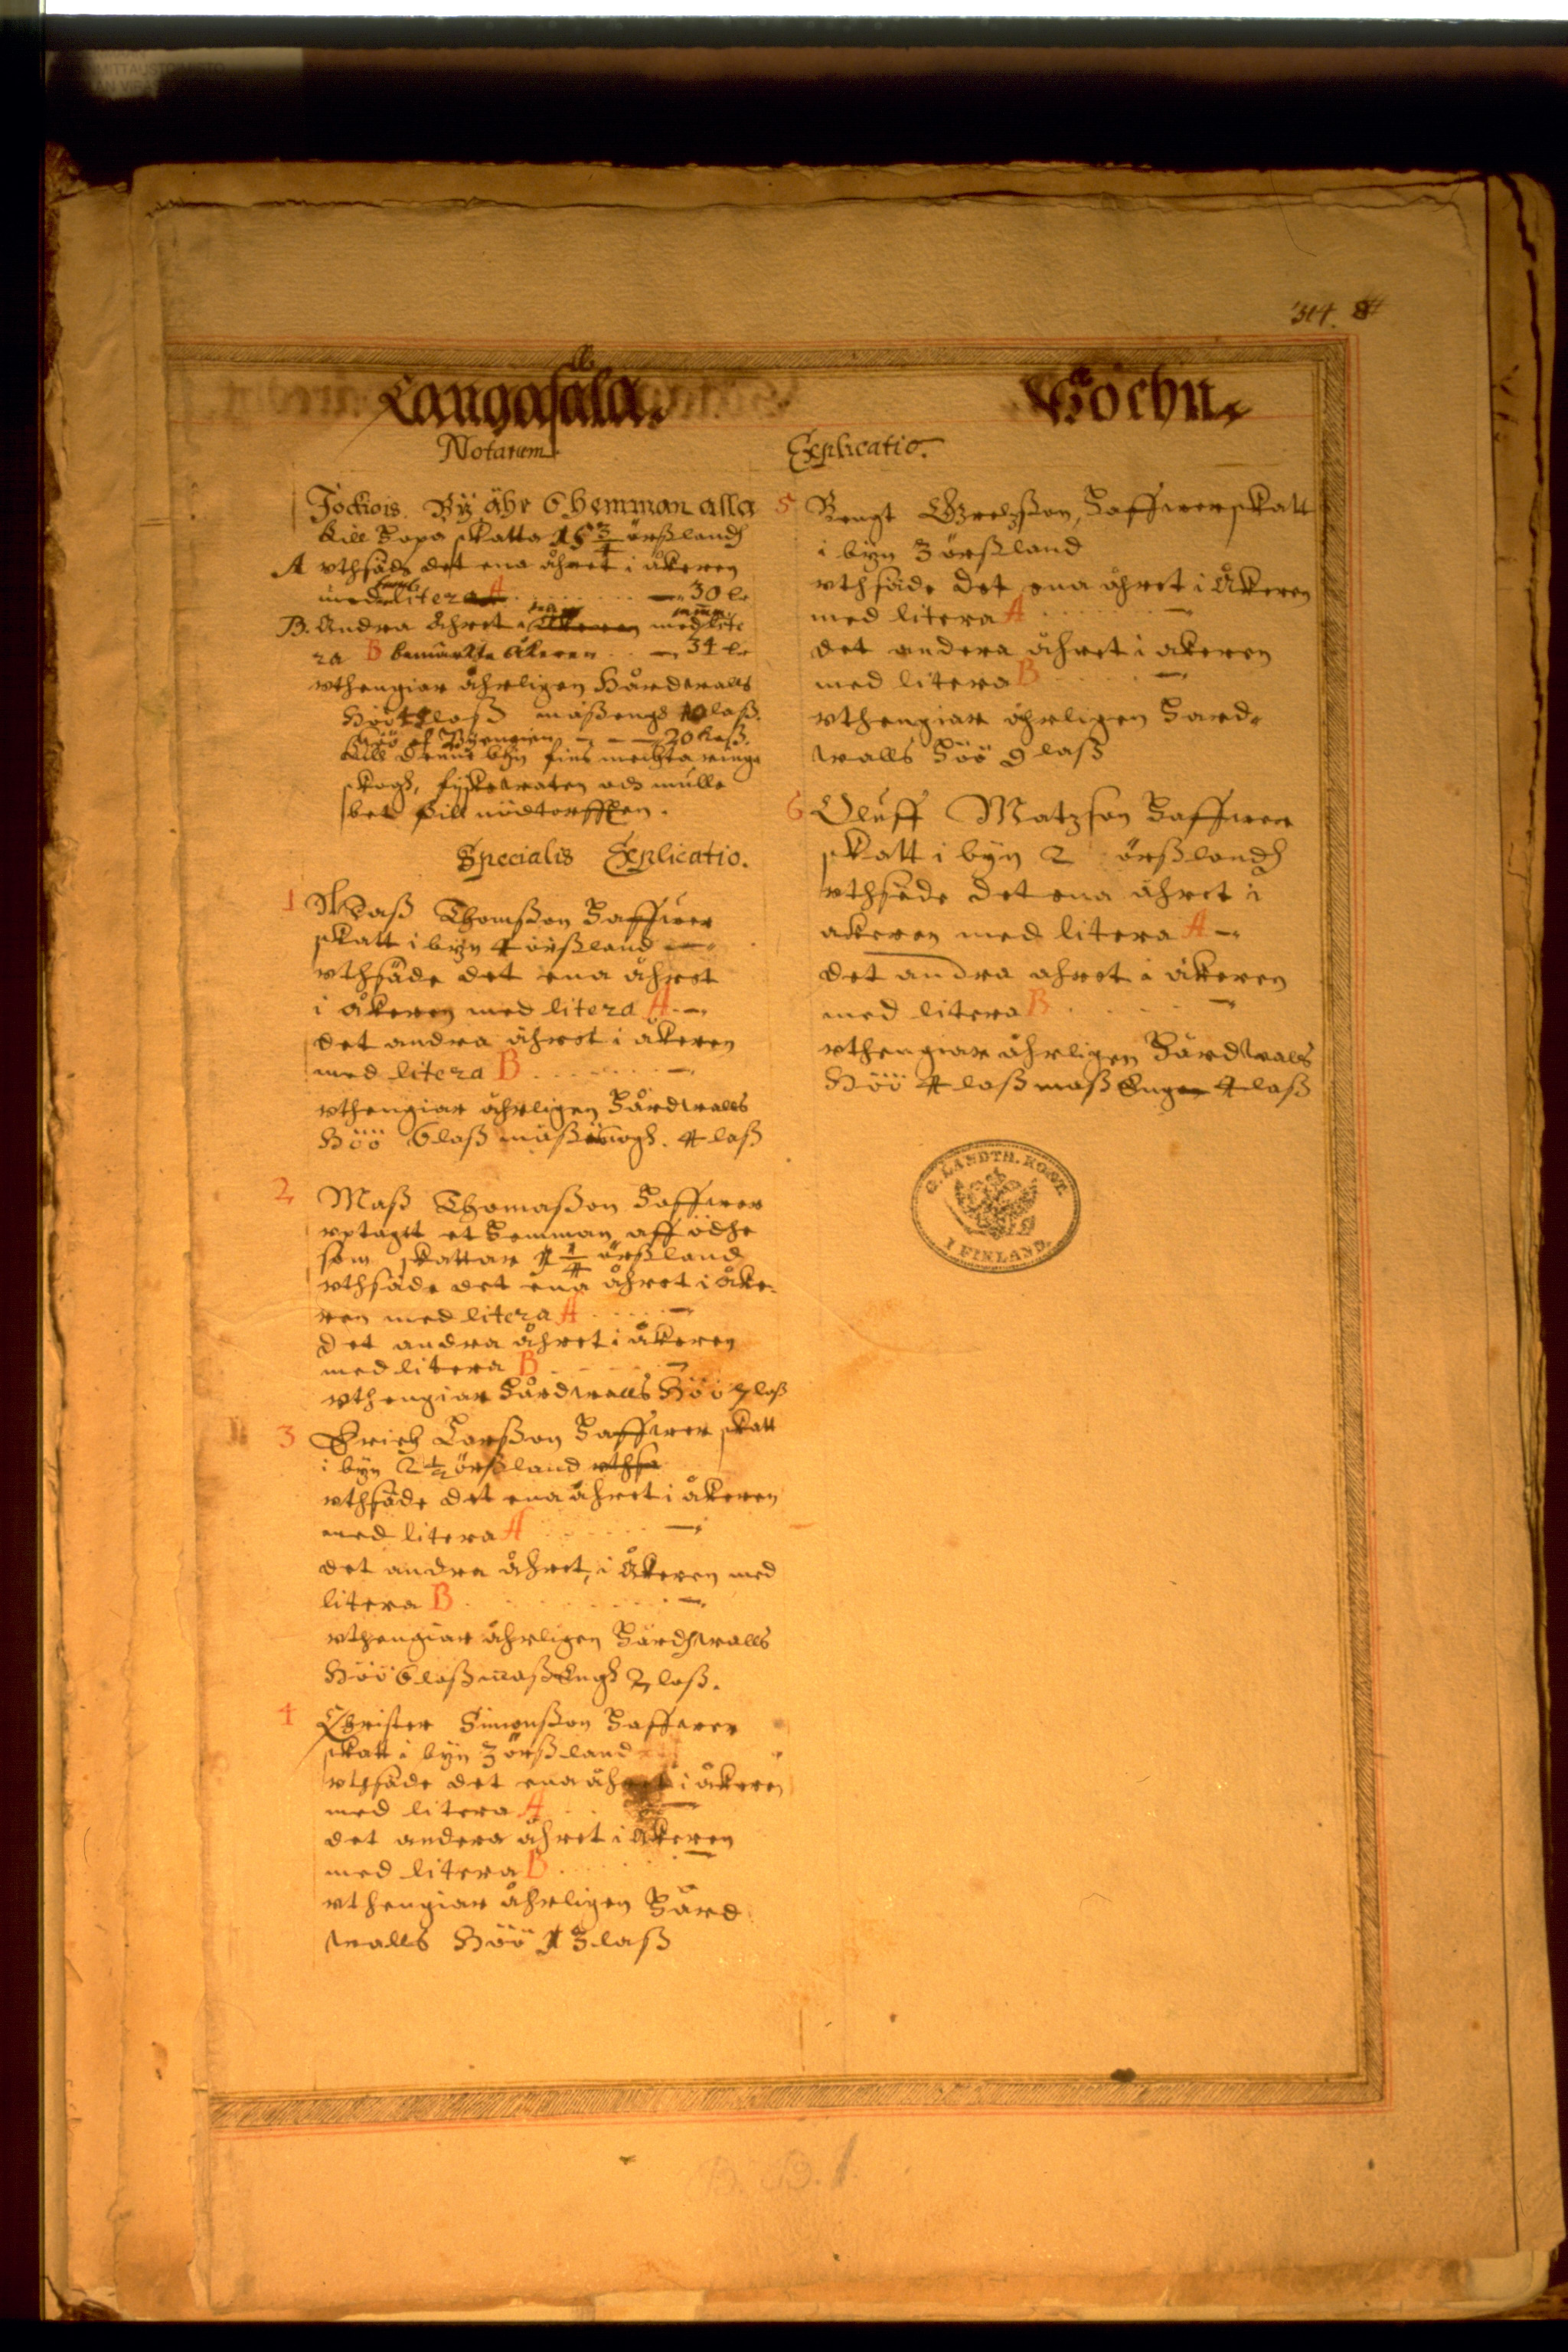 314. 84
Cangasala. Sochn.
Notarum Explicatio.
Jockiois By ähr 6 hemman alla
till hopa skatta 15 3/4 örßlandh
A vthsäde det ena åhret i åkeren
med litera A 30 t.
B. Andra åhret i med lite
ra B bemärkte åkeren 34 t.
vthengiar åhrligen hårdwalls
Höö laß måßengs 10 laß.
Höö 20 laß.
till denne byn fins
skogh, fiskewaten och mulle
bet till nödtorfften.
Specialis Explicatio.
1 Thomßon haffwer
skatt i byn 4 örßland
vthsäde det ena åhret
i åkeren med litera A
det andra åhret i åkeren
med litera B
vthengiar åhrligen hårdwalls
Höö 6 laß måß 4 laß
2 Maß Thomaßon haffwer
vptagit et hemman aff ödhe
som skattar 1 1/4 örßland
vthsäde det ena åhret i åke-
ren med litera A
det andra åhret i åkeren
med litera B
vthengiar hårdwalls Höö 7 laß
3 Erich Larßon haffwer skatt
i byn 2 1/2 örßland vthsä
vthsäde det ena åhret i åkeren
med litera A
det andra åhret, i åkeren med
litera B
vthengiar åhrligen hårdhwalls
Höö 6 laß maß Engh 2 laß.
4 Christer Simonßon haffwer
skatt i byn 3 örßland
vthsäde det ena åhret i åkeren
med litera A
det andera åhret i åkeren
med litera B
vthengiar åhrligen hård
walls Höö 13 laß
5 Bengt haffwer skatt
i byn 3 örßland
vthsäde det ena åhret i åkeren
med litera A
det andera åhret i åkeren
med litera B
vthengiar åhrligen hard-
walls höö 9 laß
6 Oluff Matzson haffwer
skatt i byn 2 örßlandh
vthsäde det ena åhret i
akeren med litera A
det andra ahret i åkeren
med litera B
vthengiar åhrligen hårdwalls
Höö 4 laß maß Engen 4 laß
G. LANDTM. KONT.
I FINLAND.